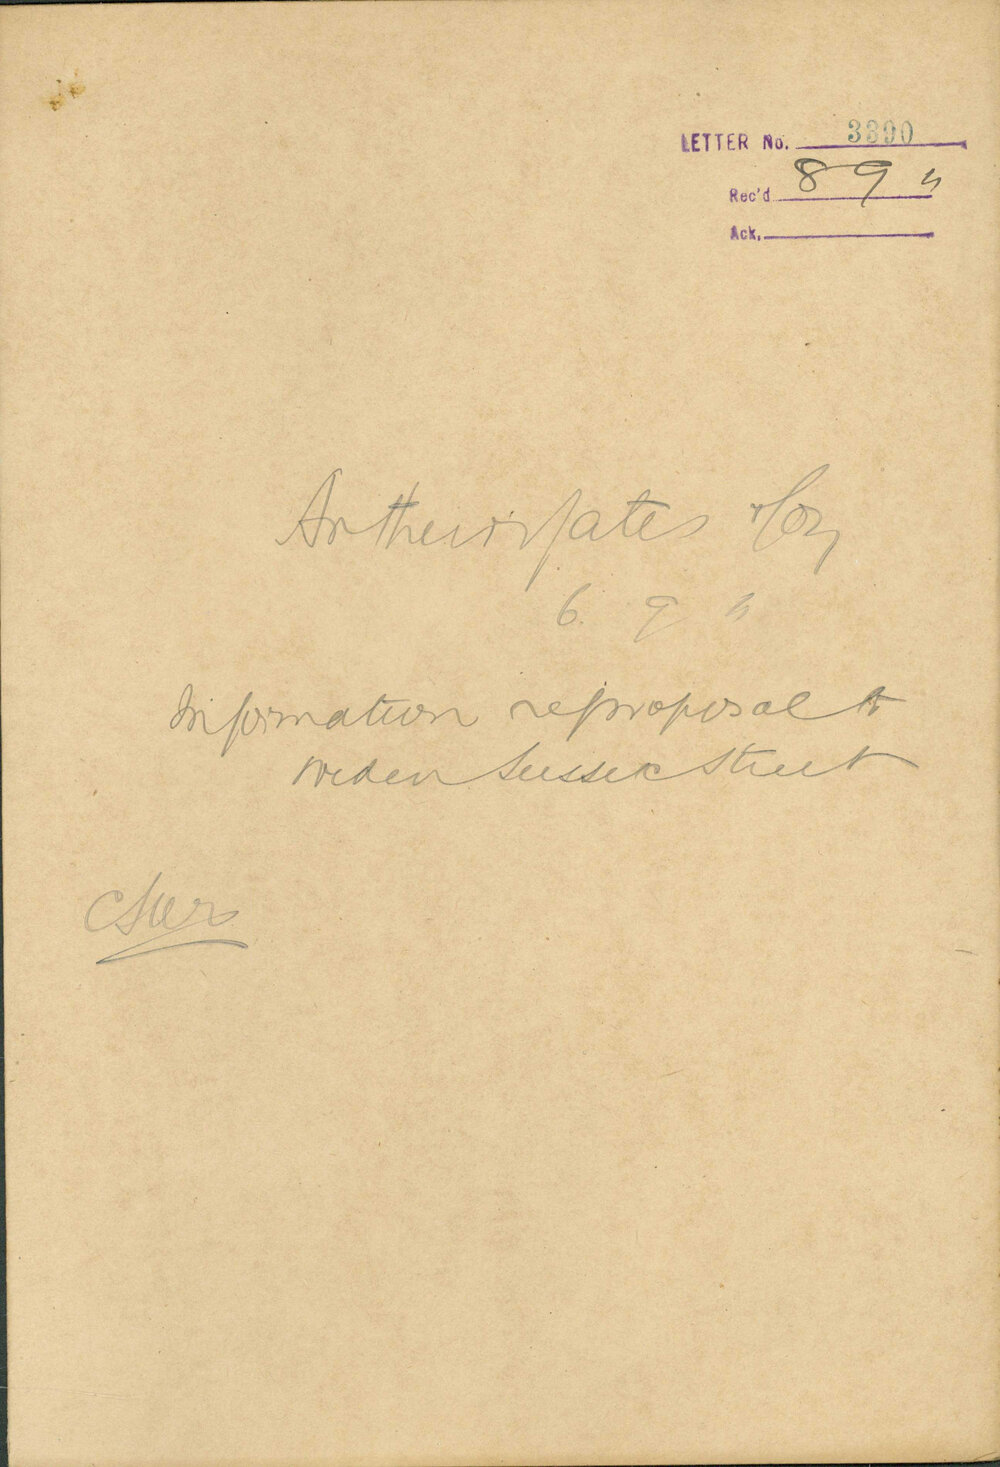 LETTER No. 3390
Rec'd 8 9 11
Ack.
Arthur Yates & Coy
6. 9 11
Information re proposal to
widen Sussex Street